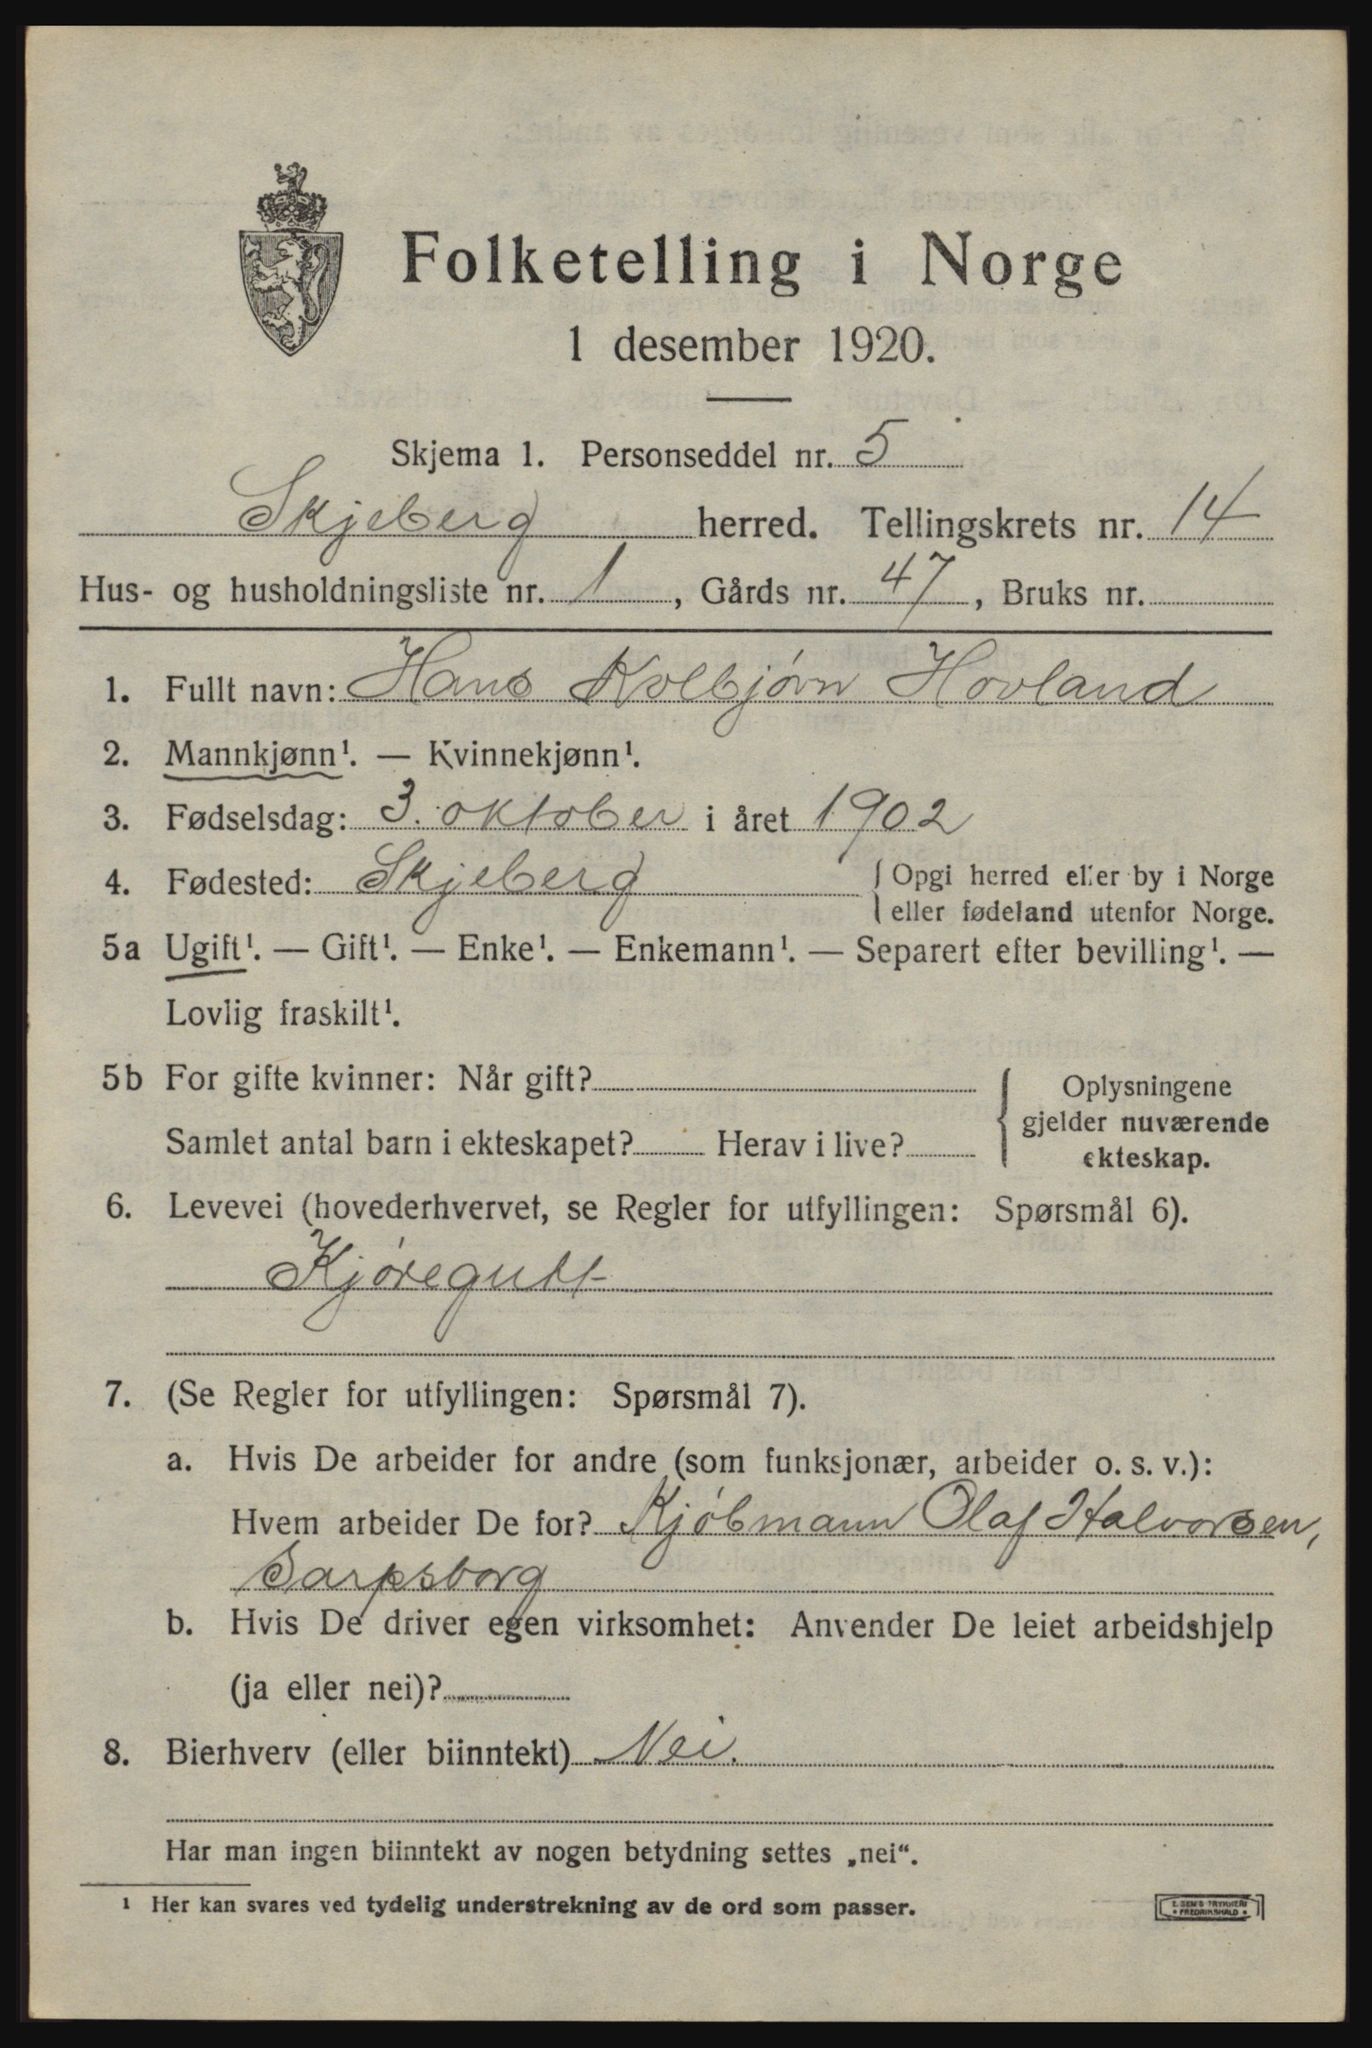 Folketelling i Norge
1 desember 1920.
Skjema 1. Personseddel nr. 5
Skjeberg herred. Tellingskrets nr. 14
Hus- og husholdningsliste nr. 1, Gårds nr. 47, Bruks nr.
1. Fullt navn: Hans Kolbjørn Hovland
2. Mannkjønn¹. — Kvinnekjønn¹.
3. Fødselsdag: 3. oktober i året 1902
4. Fødested: Skjeberg { Opgi herred eller by i Norge
eller fødeland utenfor Norge.
5a Ugift¹. — Gift¹. — Enke¹. — Enkemann¹. — Separert efter bevilling¹. —
Lovlig fraskilt¹.
5b For gifte kvinner: Når gift? { Oplysningene
gjelder nuværende
Samlet antal barn i ekteskapet? Herav i live?
ekteskap.
6. Levevei (hovederhvervet, se Regler for utfyllingen: Spørsmål 6).
Kjøregutt
7. (Se Regler for utfyllingen: Spørsmål 7).
a. Hvis De arbeider for andre (som funksjonær, arbeider o. s. v.):
Hvem arbeider De for? Kjøbmann Olaf Halvorsen,
Sarpsborg
b. Hvis De driver egen virksomhet: Anvender De leiet arbeidshjelp
(ja eller nei)?
8. Bierhverv (eller biinntekt) Nei.
Har man ingen biinntekt av nogen betydning settes „nei“.
¹ Her kan svares ved tydelig understrekning av de ord som passer.
TRYKKERI
FREDRIKSHALD